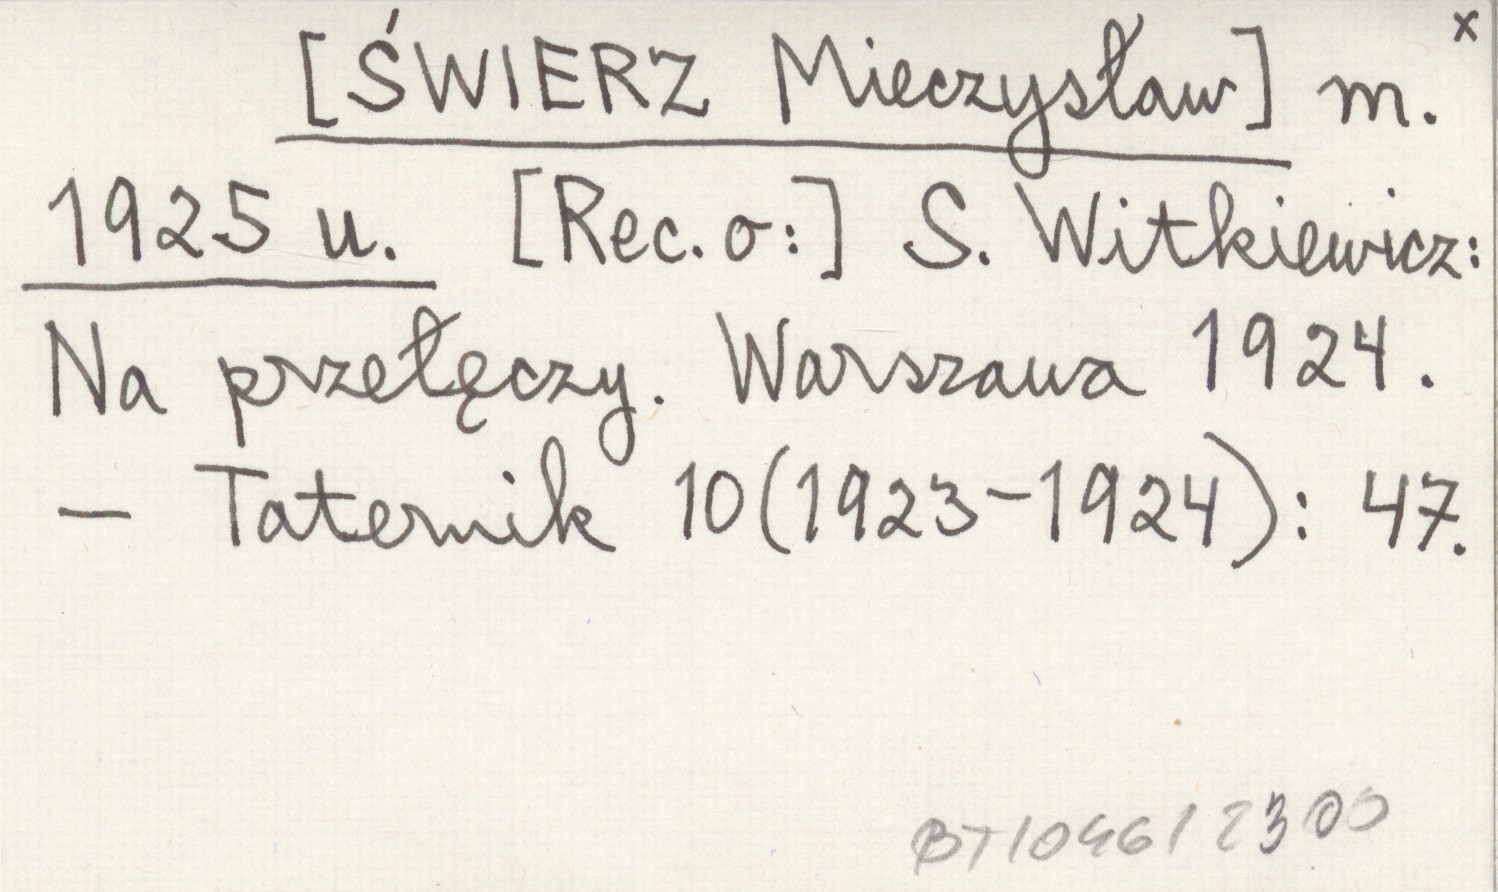 x
[ŚWIERZ Mieczysław] m.
1925 u. [Rec. o:] S. Witkiewicz:
Na przełęczy. Warszawa 1924.
— Taternik 10(1923-1924): 47.
BT104612300